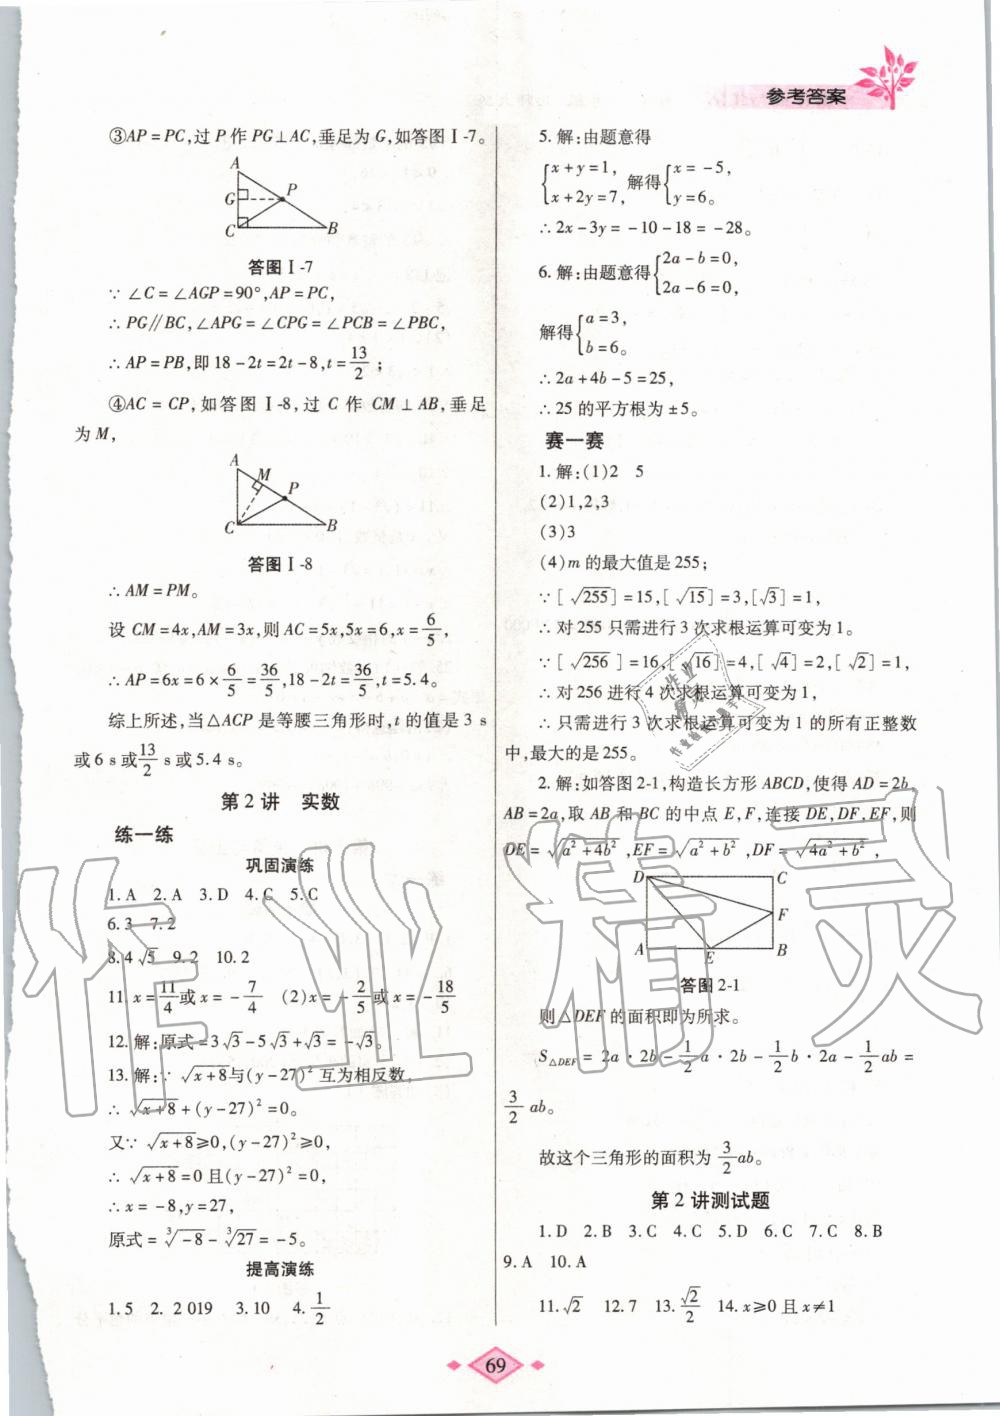 参考答案
③AP=PC,过P作PG⊥AC,垂足为G,如答图Ⅰ-7。
A
G
P
C
B
答图Ⅰ-7
∵∠C=∠AGP=90°,AP=PC,
∴PG∥BC,∠APG=∠CPG=∠PCB=∠PBC,
∴AP=PB,即18-2t=2t-8,t=13/2;
④AC=CP,如答图Ⅰ-8,过C作CM⊥AB,垂足
为M,
A
M
P
C
B
答图Ⅰ-8
∴AM=PM。
设CM=4x,AM=3x,则AC=5x,5x=6,x=6/5,
∴AP=6x=6×6/5=36/5,18-2t=36/5,t=5.4。
综上所述,当△ACP是等腰三角形时,t的值是3 s
或6 s或13/2 s或5.4 s。
第2讲 实数
练一练
巩固演练
1.A 2.A 3.D 4.C 5.C
6.3 7.2
8.4√5 9.2 10.2
11.x=11/4或x=-7/4 (2)x=-2/5或x=-18/5
12.解:原式=3√3-5√3+√3=-√3。
13.解:∵√(x+8)与(y-27)²互为相反数,
∴√(x+8)+(y-27)²=0。
又∵√(x+8)≥0,(y-27)²≥0,
∴√(x+8)=0且(y-27)²=0,
∴x=-8,y=27,
原式=∛-8-∛27=-5。
提高演练
1.5 2.2 019 3.10 4.1/2
5.解:由题意得
{x+y=1, x+2y=7, 解得{x=-5, y=6。
∴2x-3y=-10-18=-28。
6.解:由题意得{2a-b=0, 2a-6=0,
解得{a=3, b=6。
∴2a+4b-5=25,
∴25的平方根为±5。
赛一赛
1.解:(1)2 5
(2)1,2,3
(3)3
(4)m的最大值是255;
∵[√255]=15,[√15]=3,[√3]=1,
∴对255只需进行3次求根运算可变为1。
∵[√256]=16,[√16]=4,[√4]=2,[√2]=1,
∴对256进行4次求根运算可变为1,
∴只需进行3次求根运算可变为1的所有正整数
中,最大的是255。
2.解:如答图2-1,构造长方形ABCD,使得AD=2b,
AB=2a,取AB和BC的中点E,F,连接DE,DF,EF,则
DE=√(a²+4b²),EF=√(a²+b²),DF=√(4a²+b²),
D
C
F
A
E
B
答图2-1
则△DEF的面积即为所求。
S△DEF=2a·2b-1/2a·2b-1/2b·2a-1/2ab=
3/2ab。
故这个三角形的面积为3/2ab。
第2讲测试题
1.D 2.B 3.C 4.C 5.D 6.C 7.C 8.B
9.A 10.A
11.√2 12.7 13.√2/2 14.x≥0且x≠1
69
作业精灵